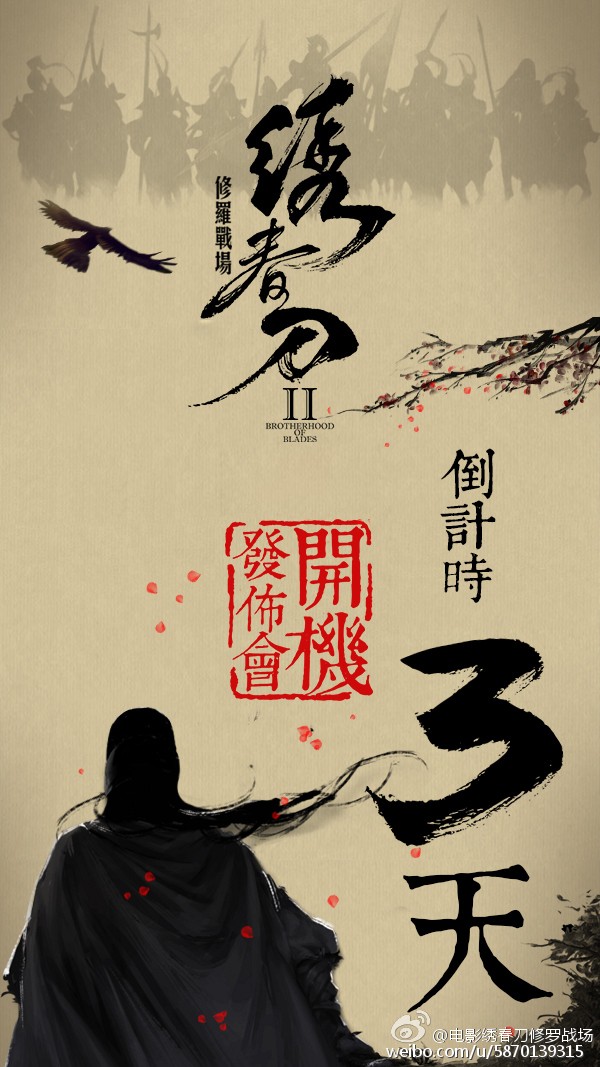 绣春刀
修羅戰場
II
BROTHERHOOD
OF
BLADES
倒計時
3天
開機
發佈會
@电影绣春刀修罗战场
weibo.com/u/5870139315